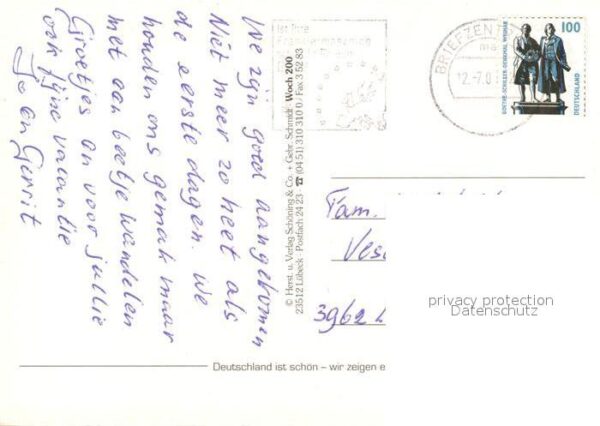 We zijn goed aangekomen
Niet meer zo heet als
de eerste dagen. We
houden ons gemak maar
met aan beetje wandelen
Groetjes en voor jullie
ook fijne vacantie
Jo en Gerrit
© Herst. u. Verlag Schöning & Co. + Gebr. Schmidt · Woch 200
23512 Lübeck · Postfach 24 23 · ☎ (04 51) 310 310 0 / Fax 3 52 83
Ist Ihre
BRIEFZEN
12.-7.0
100
GOETHE-SCHILLER-DENKMAL WEIMAR
DEUTSCHLAND
Fam.
3962
privacy protection
Datenschutz
Deutschland ist schön – wir zeigen e